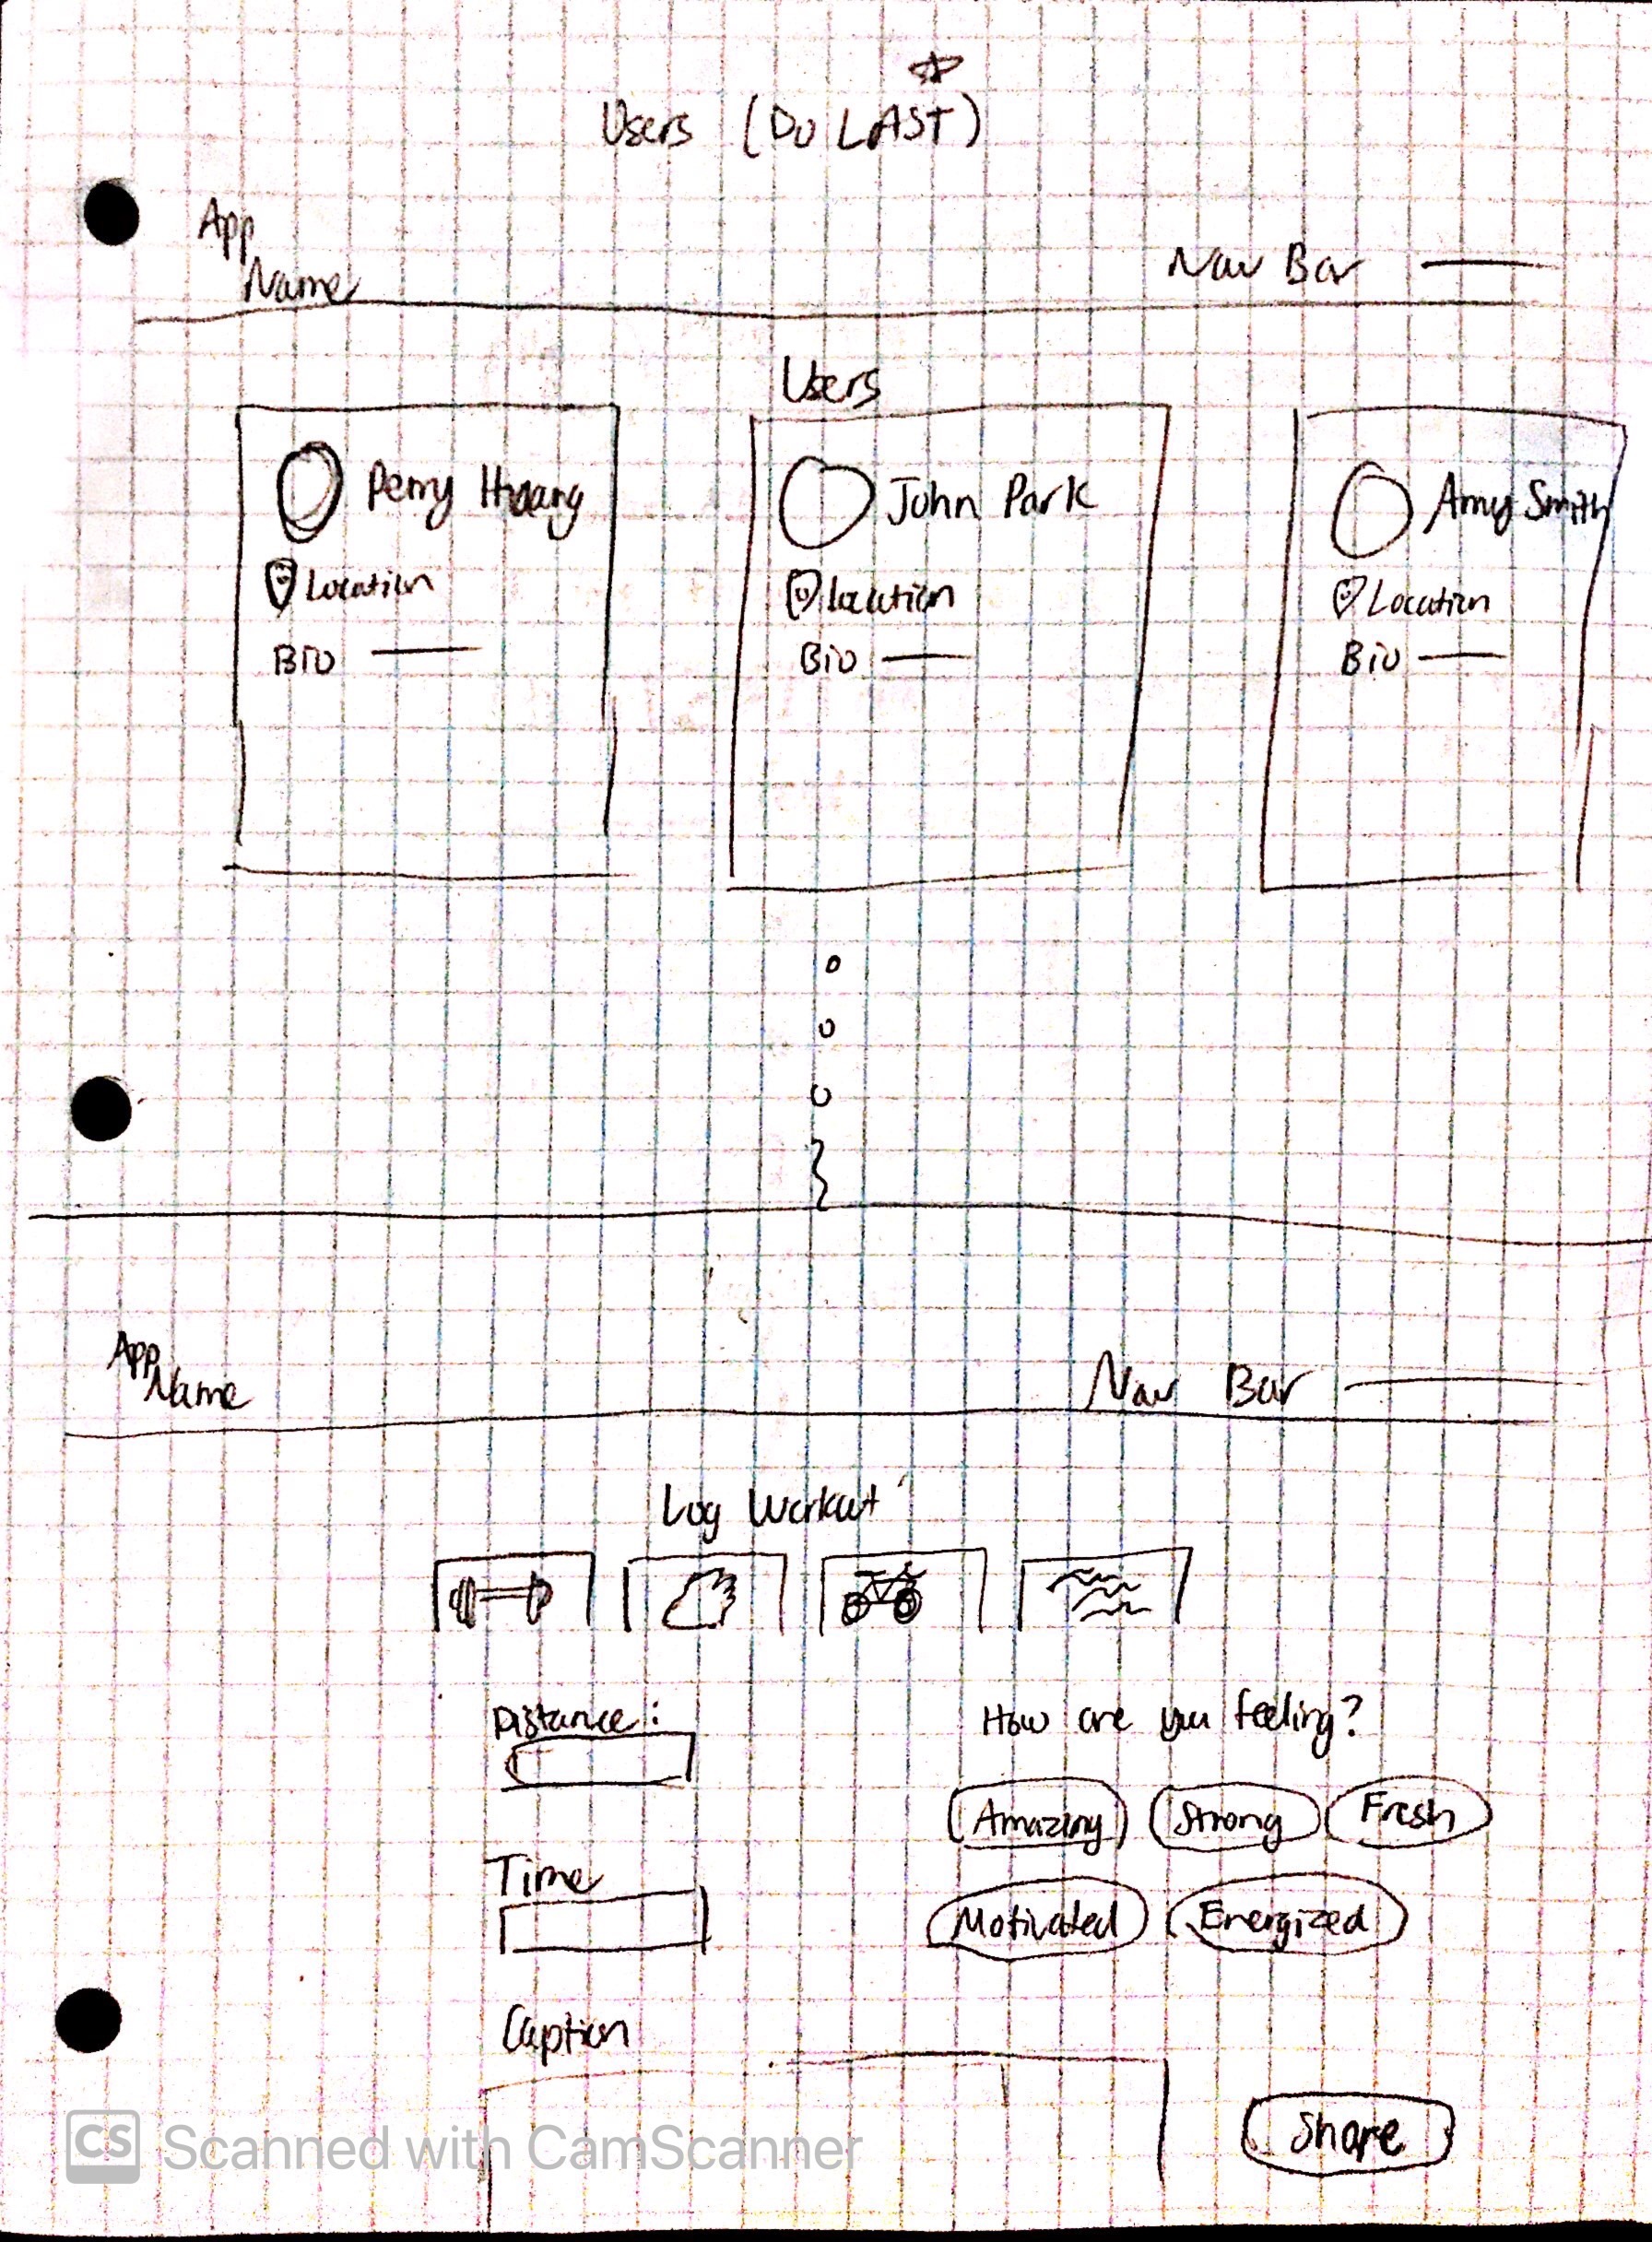 Users (DO LAST)
App
Name
Nav Bar
Users
Perry Huang
Location
Bio
John Park
Location
Bio
Amy Smith
Location
Bio
App
Name
Nav Bar
Log Workout
Distance:
How are you feeling?
Amazing
Strong
Fresh
Time
Motivated
Energized
Caption
Share
CS Scanned with CamScanner